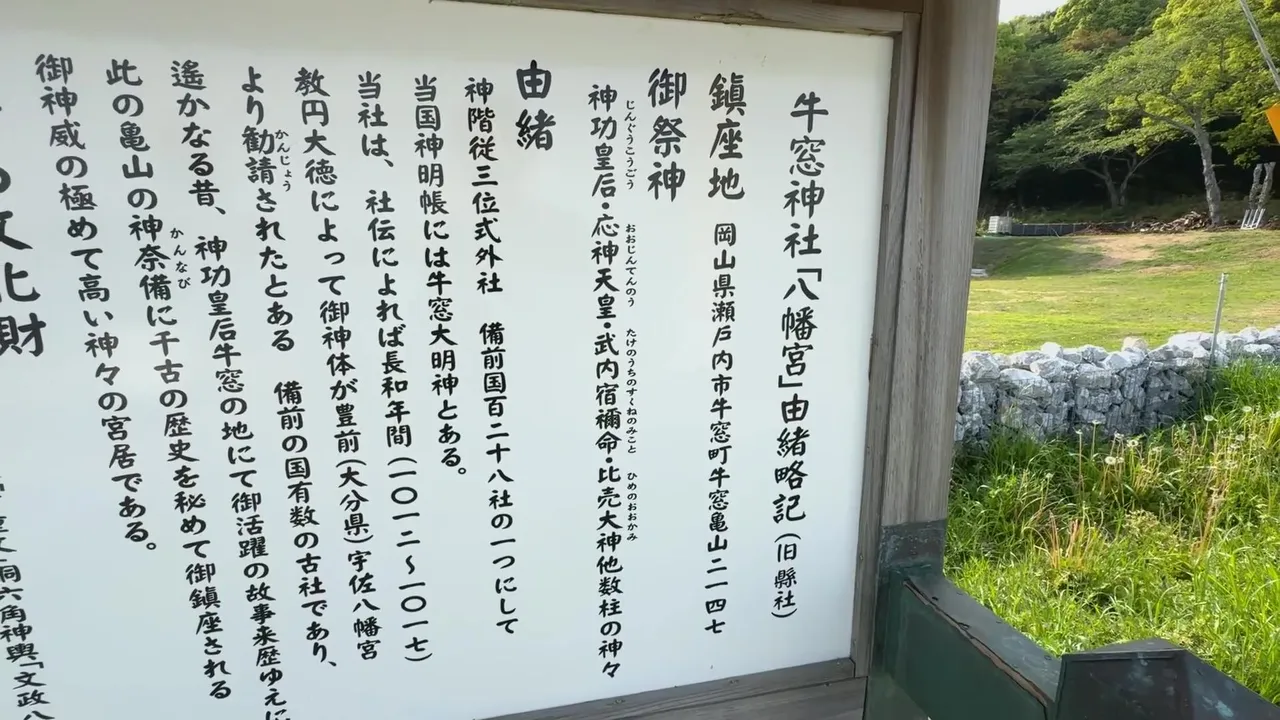 牛窓神社「八幡宮」由緒略記(旧縣社)
鎮座地 岡山県瀬戸内市牛窓町牛窓亀山二一四七
御祭神
神功皇后・応神天皇・武内宿禰命・比売大神他数柱の神々
じんぐうこうごう おおじんてんのう たけのうちのすくねのみこと ひめのおおかみ
由緒
神階従三位式外社 備前国百二十八社の一つにして
当国神明帳には牛窓大明神とある。
当社は、社伝によれば長和年間(一〇一二〜一〇一七)
教円大徳によって御神体が豊前(大分県)宇佐八幡宮
より勧請されたとある 備前の国有数の古社であり、
かんじょう
遙かなる昔、神功皇后牛窓の地にて御活躍の故事来歴ゆえに
此の亀山の神奈備に千古の歴史を秘めて御鎮座される
かんなび
御神威の極めて高い神々の宮居である。
文化財
六角神輿「文政八